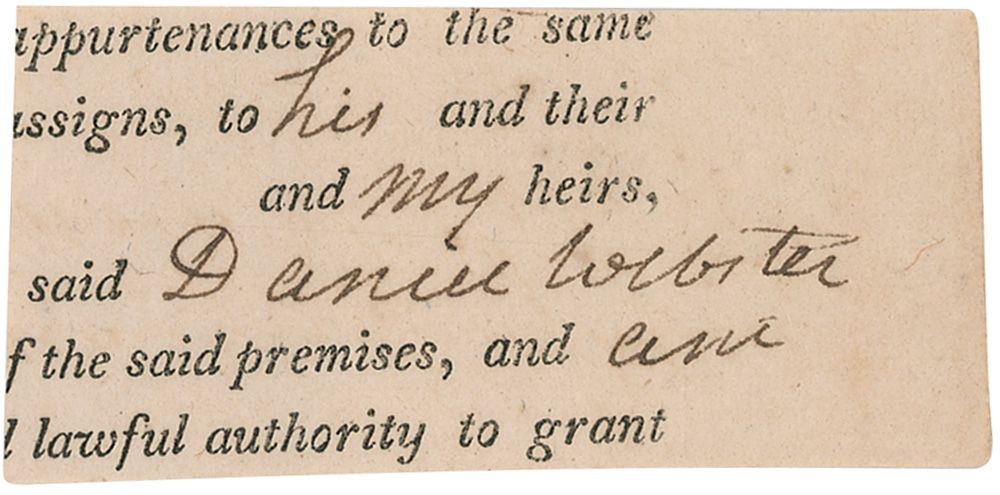 appurtenances to the same
assigns, to his and their
and my heirs,
said Daniel Webster
f the said premises, and am
l lawful authority to grant